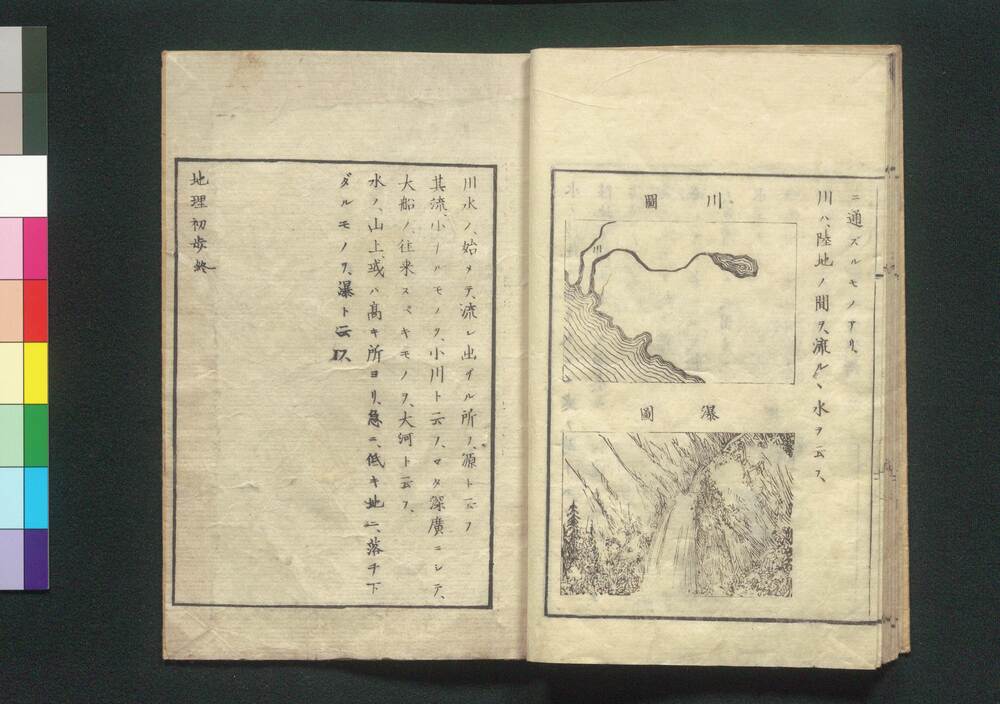 ニ通ズルモノアリ、
川ハ、陸地ノ間ヲ、流ルヽ水ヲ云フ、
川圖
川
瀑圖
川水ノ、始メテ、流レ出イル所ヲ、源ト云フ
其流、小ナルモノヲ、小川ト云フ、マタ深廣ニシテ、
大船ノ、往来スベキモノヲ、大河ト云フ、
水ノ、山上、或ハ高キ所ヨリ、急ニ、低キ地ニ、落チ下
ダルモノヲ、瀑ト云フ、
地理初歩終